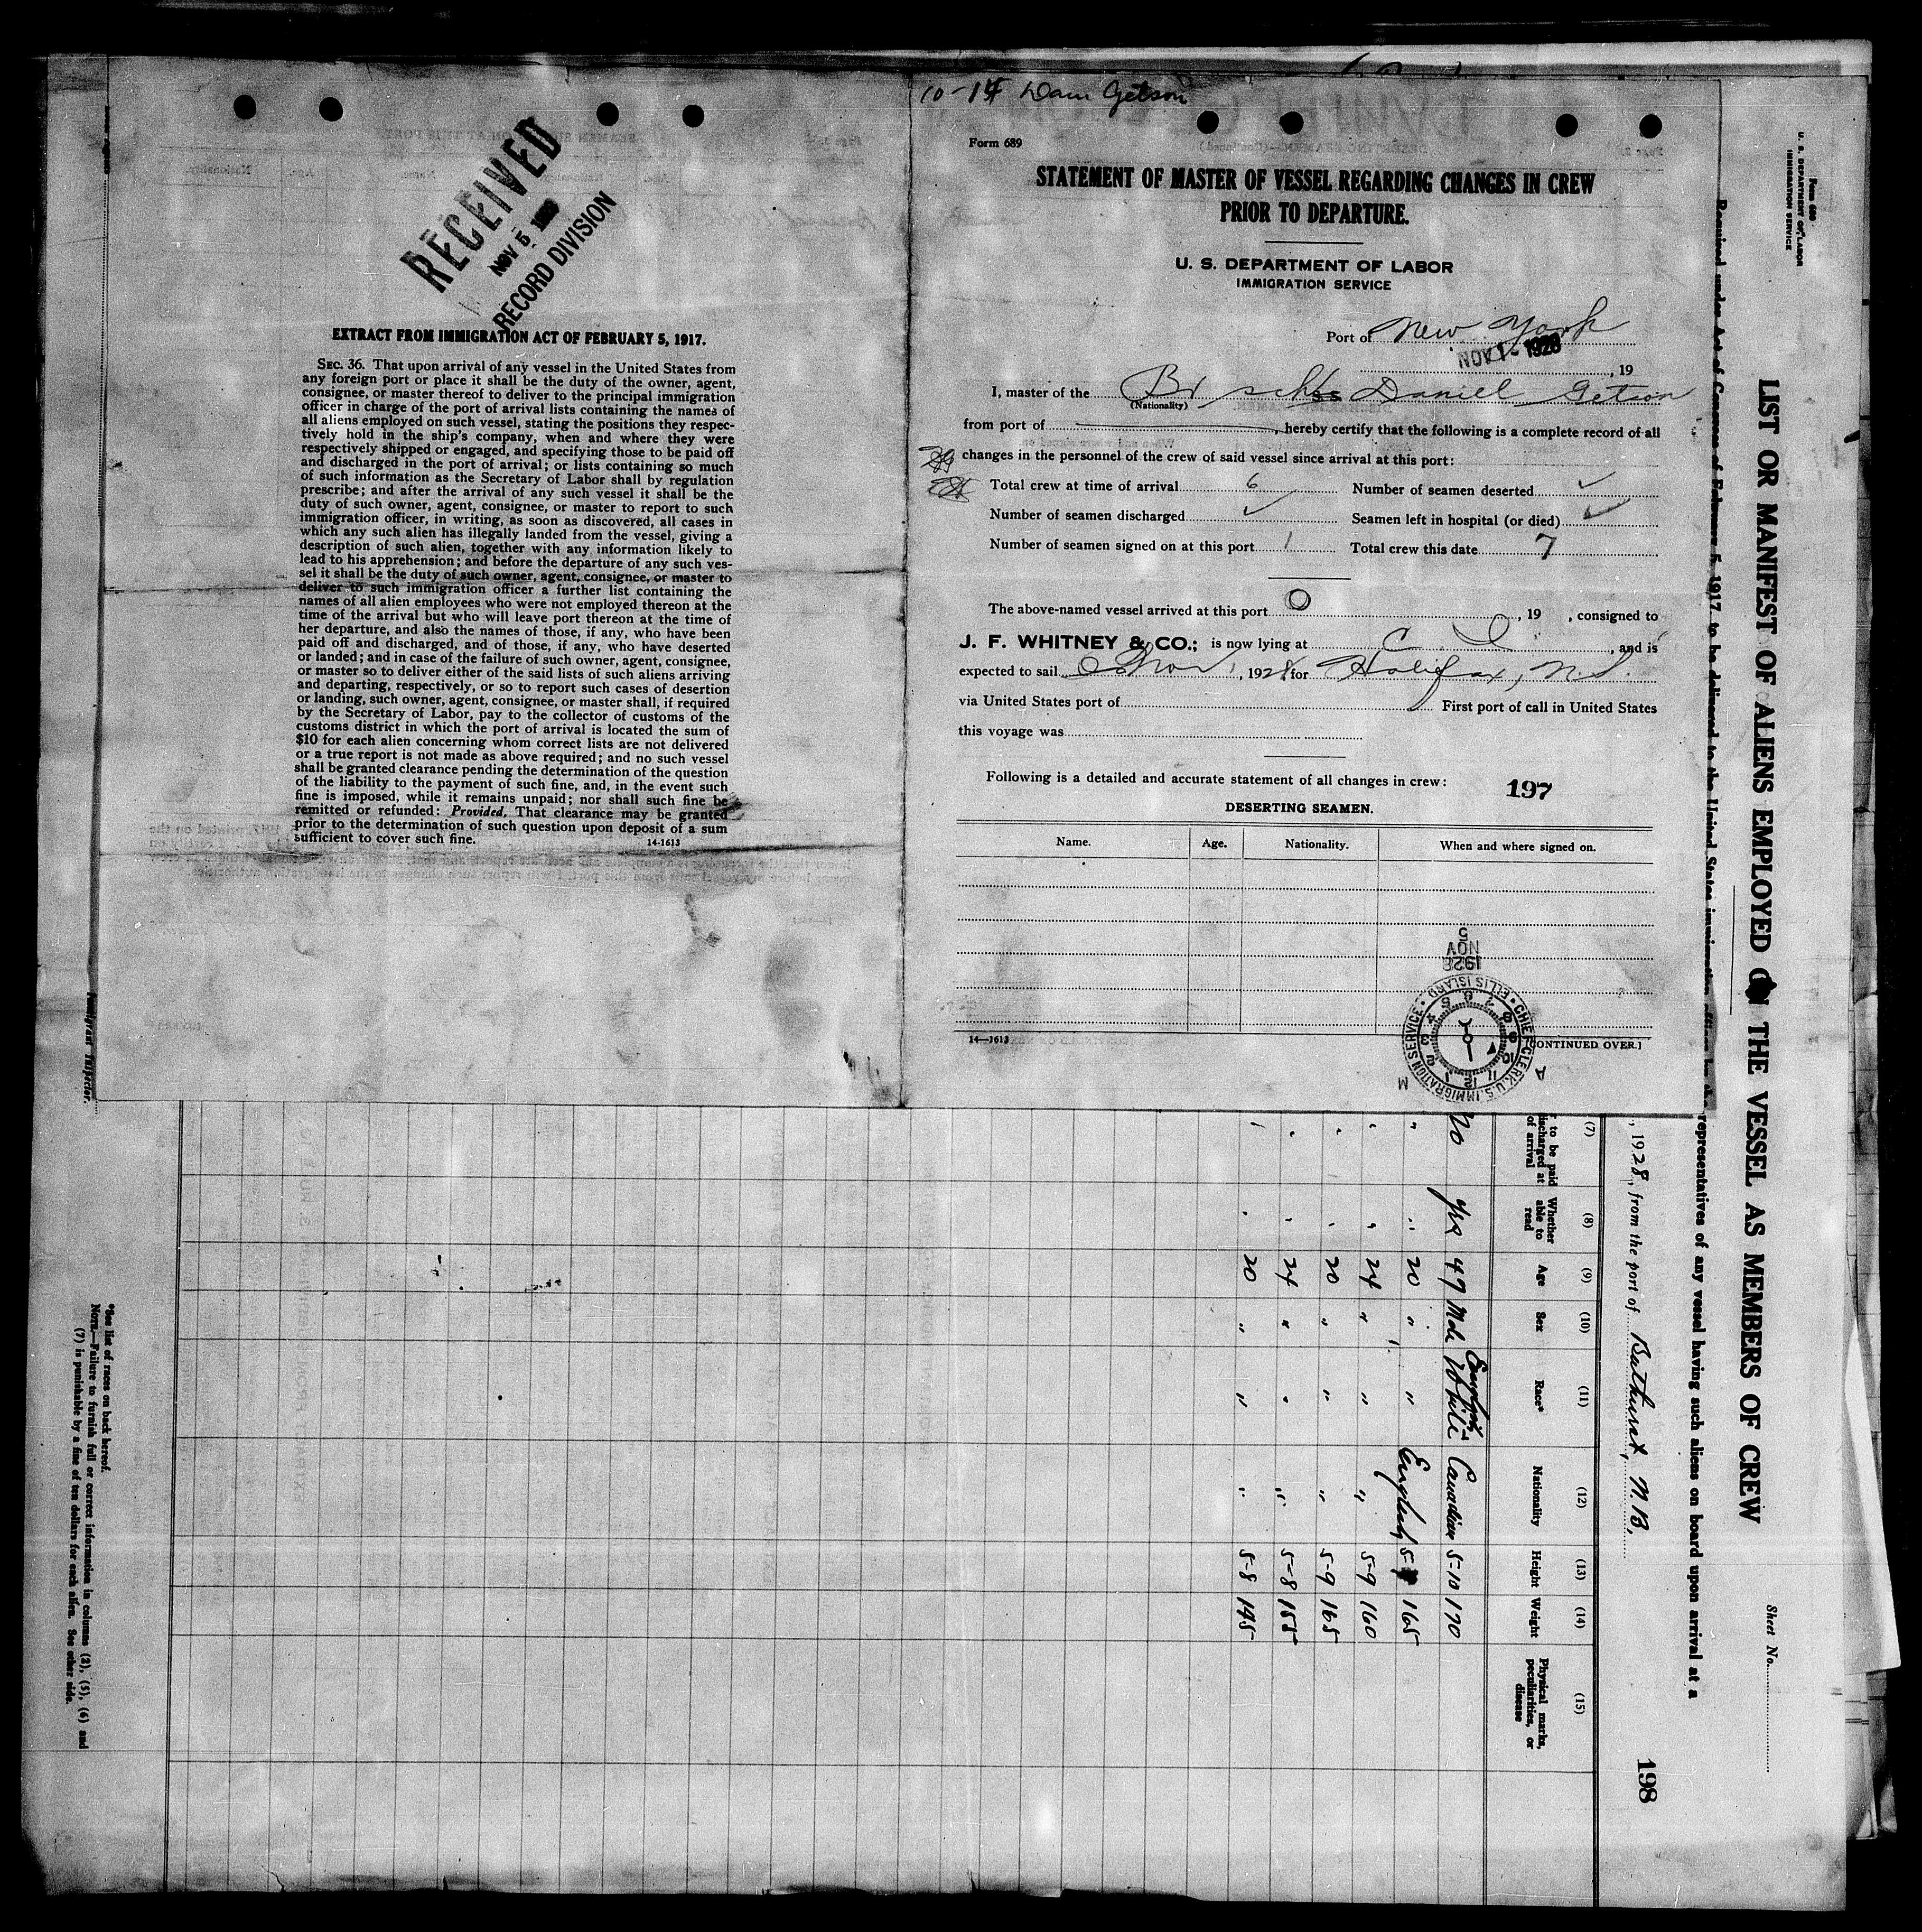 10-14 Dan Getson
Form 689
STATEMENT OF MASTER OF VESSEL REGARDING CHANGES IN CREW
PRIOR TO DEPARTURE.
U. S. DEPARTMENT OF LABOR
IMMIGRATION SERVICE
Port of New York
NOV 1 - 1928, 19
I, master of the Br sch ss Daniel Getson
(Nationality)
from port of , hereby certify that the following is a complete record of all
changes in the personnel of the crew of said vessel since arrival at this port:
Total crew at time of arrival 6 Number of seamen deserted ✓
Number of seamen discharged ✓ Seamen left in hospital (or died) ✓
Number of seamen signed on at this port 1 Total crew this date 7
The above-named vessel arrived at this port , 19 , consigned to
J. F. WHITNEY & CO.; is now lying at , and is
expected to sail Nov 1, 1928 for Halifax, N.S.
via United States port of First port of call in United States
this voyage was
Following is a detailed and accurate statement of all changes in crew: 197
DESERTING SEAMEN.
Name. Age. Nationality. When and where signed on.
14—1613 [CONTINUED OVER.]
5
NOV
1928
CHIEF CLERK, U.S. IMMIGRATION SERVICE • ELLIS ISLAND •
A M
RECEIVED
NOV 5 1928
RECORD DIVISION
EXTRACT FROM IMMIGRATION ACT OF FEBRUARY 5, 1917.
SEC. 36. That upon arrival of any vessel in the United States from
any foreign port or place it shall be the duty of the owner, agent,
consignee, or master thereof to deliver to the principal immigration
officer in charge of the port of arrival lists containing the names of
all aliens employed on such vessel, stating the positions they respec-
tively hold in the ship's company, when and where they were
respectively shipped or engaged, and specifying those to be paid off
and discharged in the port of arrival; or lists containing so much
of such information as the Secretary of Labor shall by regulation
prescribe; and after the arrival of any such vessel it shall be the
duty of such owner, agent, consignee, or master to report to such
immigration officer, in writing, as soon as discovered, all cases in
which any such alien has illegally landed from the vessel, giving a
description of such alien, together with any information likely to
lead to his apprehension; and before the departure of any such ves-
sel it shall be the duty of such owner, agent, consignee, or master to
deliver to such immigration officer a further list containing the
names of all alien employees who were not employed thereon at the
time of the arrival but who will leave port thereon at the time of
her departure, and also the names of those, if any, who have been
paid off and discharged, and of those, if any, who have deserted
or landed; and in case of the failure of such owner, agent, consignee,
or master so to deliver either of the said lists of such aliens arriving
and departing, respectively, or so to report such cases of desertion
or landing, such owner, agent, consignee, or master shall, if required
by the Secretary of Labor, pay to the collector of customs of the
customs district in which the port of arrival is located the sum of
$10 for each alien concerning whom correct lists are not delivered
or a true report is not made as above required; and no such vessel
shall be granted clearance pending the determination of the question
of the liability to the payment of such fine, and, in the event such
fine is imposed, while it remains unpaid; nor shall such fine be
remitted or refunded: Provided, That clearance may be granted
prior to the determination of such question upon deposit of a sum
sufficient to cover such fine. 14-1613
Form 680
U. S. DEPARTMENT OF LABOR
IMMIGRATION SERVICE
LIST OR MANIFEST OF ALIENS EMPLOYED ON THE VESSEL AS MEMBERS OF CREW
Sheet No.
Required under Act of Congress of February 5, 1917, to be delivered to the United States immigration representatives of any vessel having such aliens on board upon arrival at a
, 1928, from the port of Bathurst, N.B.
198
(7) (8) (9) (10) (11) (12) (13) (14) (15)
to be paid discharged at of arrival Whether able to read Age Sex Race* Nationality Height Weight Physical marks, peculiarities, or disease
No Yes 49 Male English White Canadian 5-10 170
" " 20 " " English 5- 165
" " 24 " " " 5-9 160
" " 20 " " " 5-9 165
" " 24 " " " 5-8 155
" " 20 " " " 5-8 145
*See list of races on back hereof.
NOTE.—Failure to furnish full or correct information in columns (2), (5), (6) and
(7) is punishable by a fine of ten dollars for each alien. See other side.
Immigrant Inspector.